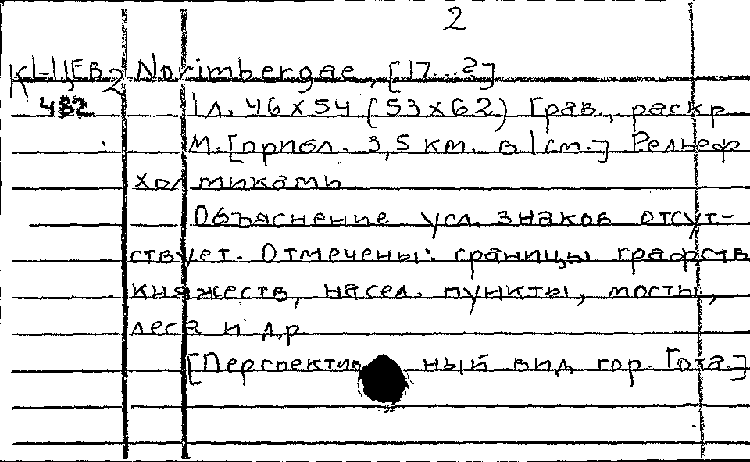 2
К Ц ЕВ 2 Norimbergae, [17...?]
482 1 л. 46 х 54 (53 х 62) Грав., раскр
М. [прибл. 3,5 км. в 1 см.] Рельеф
холмиками
Объяснение усл. знаков отсут-
ствует. Отмечены: границы графств
княжеств, насел. пункты, мосты,
леса и др
[Перспективный вид гор. Гота.]